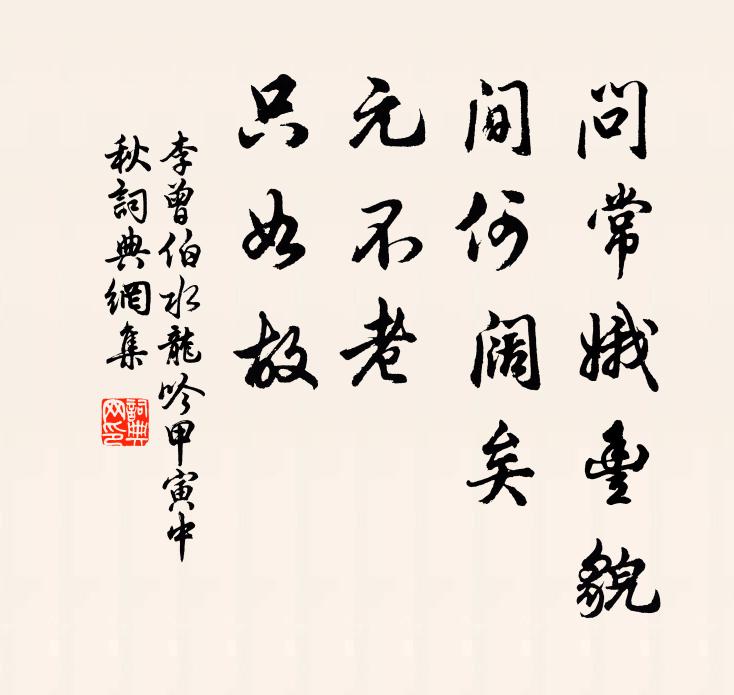 問常娥豊貌
间何阔矣
元不老
只如故
李曾伯水龍吟甲寅中
秋詞典網集
詞典网印